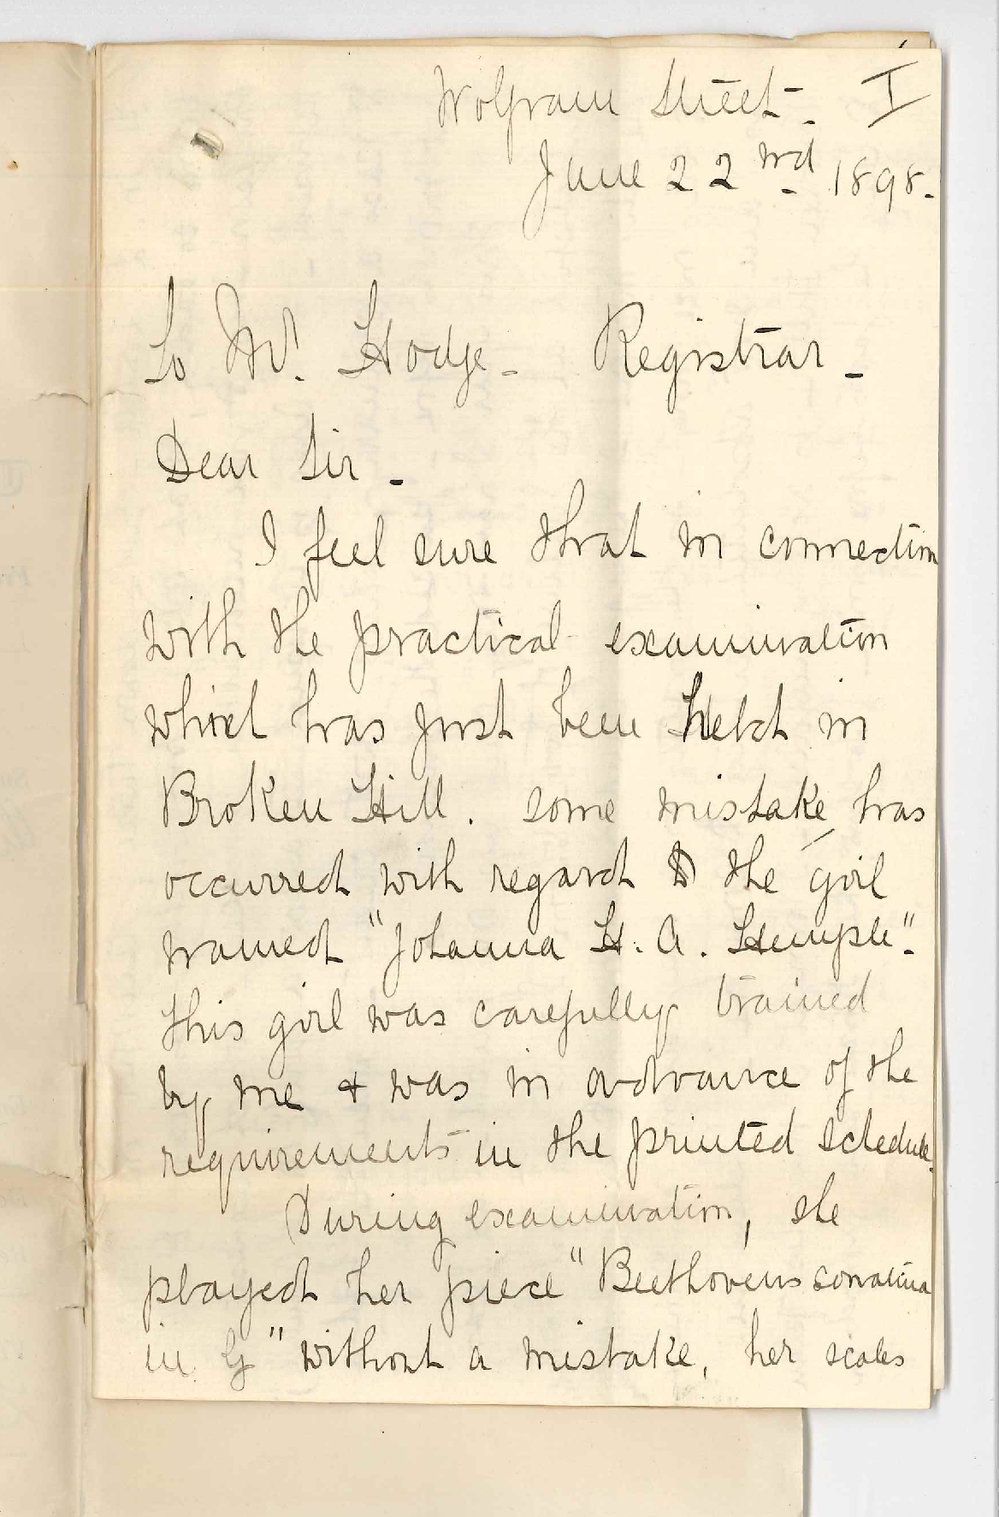 Wolfram Street. I
June 22nd 1898.
To Mr. Hodge. Registrar.
Dear Sir.
I feel sure that in connection
with the practical examination
which has just been held in
Broken Hill. some mistake has
occurred with regard to the girl
named "Johanna H. A. Hemple".
This girl was carefully trained
by me & was in advance of the
requirements in the printed schedule.
During examination, she
played her piece "Beethovens sonatina
in G" without a mistake, her scales